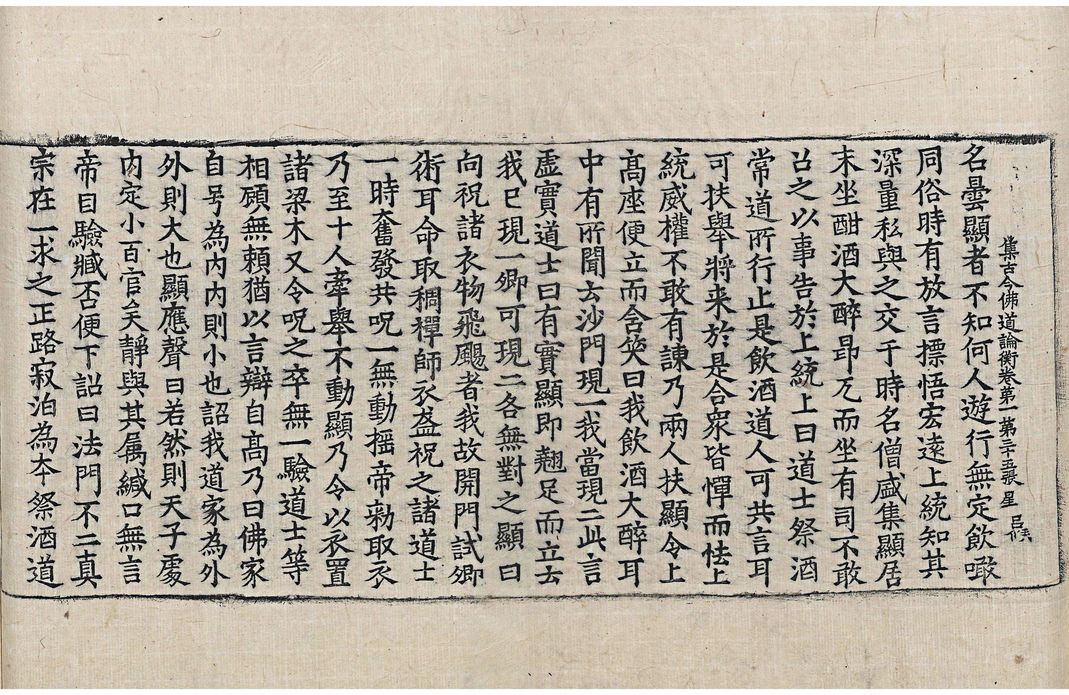 集古今佛道論衡卷第一第三十五張 星
名曇顯者不知何人遊行無定飲噉
同俗時有放言摽悟宏遠上統知其
深量私與之交于時名僧盛集顯居
末坐酣酒大醉昂兀而坐有司不敢
召之以事告於上統上曰道士祭酒
常道所行止是飲酒道人可共言耳
可扶舉將来於是合衆皆憚而怯上
統威權不敢有諫乃兩人扶顯令上
髙座便立而含笑曰我飲酒大醉耳
中有所聞去沙門現一我當現二此言
虛實道士曰有實顯即翹足而立云
我已現一卿可現二各無對之顯曰
向祝諸衣物飛颺者我故開門試卿
術耳命取稠禪師衣盋祝之諸道士
一時奮發共呪一無動揺帝勑取衣
乃至十人牽舉不動顯乃令以衣置
諸梁木又令呪之卒無一驗道士等
相顧無賴猶以言辯自髙乃曰佛家
自号為内内則小也詔我道家為外
外則大也顯應聲曰若然則天子處
内定小百官矣靜與其属緘口無言
帝目驗臧否便下詔曰法門不二真
宗在一求之正路寂泊為夲祭酒道